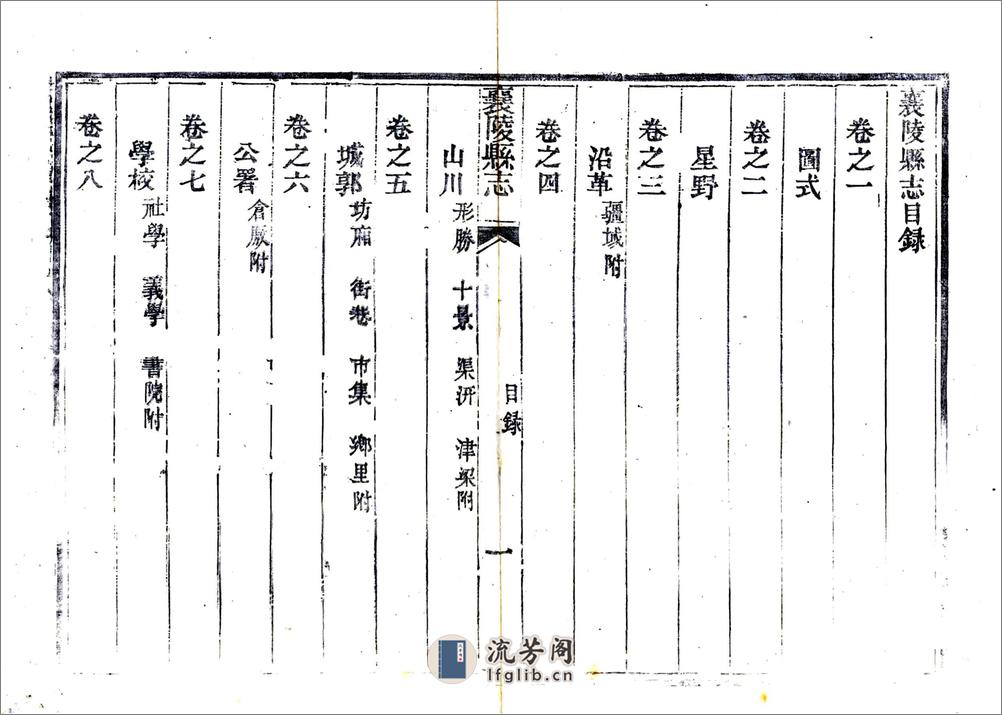 襄陵縣志目録
卷之一
圖式
卷之二
星野
卷之三
沿革 疆域附
卷之四
襄陵縣志 目録 一
山川 形勝 十景 渠汧 津梁附
卷之五
城郭 坊廂 街巷 市集 鄉里附
卷之六
公署 倉厫附
卷之七
學校 社學 義學 書院附
卷之八
流芳阁
lfglib.cn